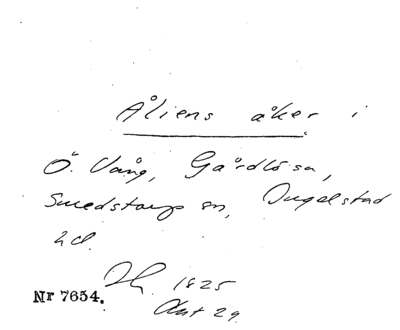 Åliens åker i
Ö. Vång, Gårdlösa,
Smedstorps sn, Ingelstad
hd.
1825
Nr 7654.
29